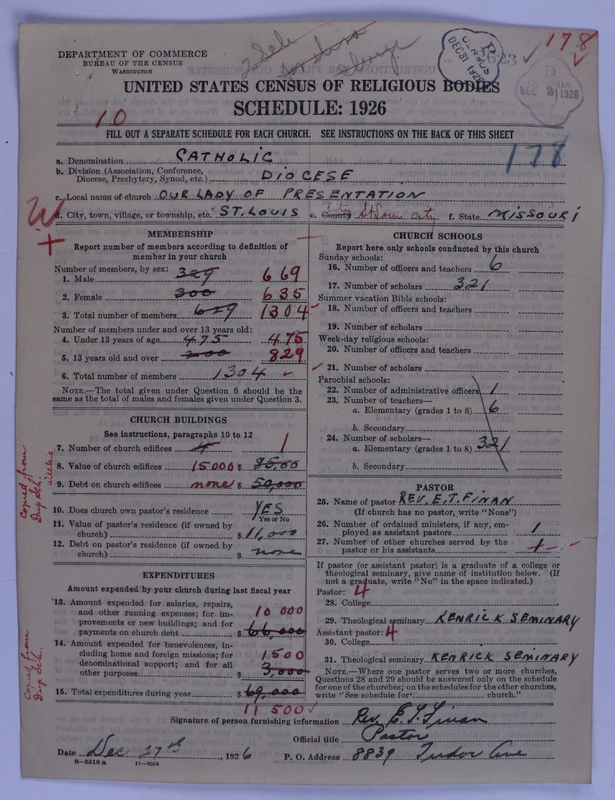 178
DEPARTMENT OF COMMERCE
BUREAU OF THE CENSUS
WASHINGTON
CENSUS
DEC 31 1926
1623
D
DEC 31 1926
UNITED STATES CENSUS OF RELIGIOUS BODIES
SCHEDULE: 1926
10
FILL OUT A SEPARATE SCHEDULE FOR EACH CHURCH. SEE INSTRUCTIONS ON THE BACK OF THIS SHEET
178
a. Denomination CATHOLIC
b. Division (Association, Conference, Diocese, Presbytery, Synod, etc.) DIOCESE
c. Local name of church OUR LADY OF PRESENTATION
d. City, town, village, or township, etc. ST. LOUIS e. County St Louis City f. State MISSOURI
MEMBERSHIP
Report number of members according to definition of
member in your church
Number of members, by sex:
1. Male 329 669
2. Female 300 635
3. Total number of members 629 1304
Number of members under and over 13 years old:
4. Under 13 years of age 475 475
5. 13 years old and over 200 829
6. Total number of members 1304
NOTE.—The total given under Question 6 should be the
same as the total of males and females given under Question 3.
CHURCH BUILDINGS
See instructions, paragraphs 10 to 12
7. Number of church edifices 4 1
8. Value of church edifices 15000 $ 85,00
9. Debt on church edifices none $ 50,000
Copied from
Dup sch.
10. Does church own pastor's residence YES
Yes or No
11. Value of pastor's residence (if owned by
church) $ 11,000
12. Debt on pastor's residence (if owned by
church) $ none
EXPENDITURES
Amount expended by your church during last fiscal year
13. Amount expended for salaries, repairs,
and other running expenses; for im-
provements or new buildings; and for
payments on church debt 10 000 $ 66,000
14. Amount expended for benevolences, in-
cluding home and foreign missions; for
denominational support; and for all
other purposes 1500 $ 3,000
15. Total expenditures during year $ 69,000
11 500
Copied from
Dup sch.
CHURCH SCHOOLS
Report here only schools conducted by this church
Sunday schools:
16. Number of officers and teachers 6
17. Number of scholars 321
Summer vacation Bible schools:
18. Number of officers and teachers
19. Number of scholars
Week-day religious schools:
20. Number of officers and teachers
21. Number of scholars
Parochial schools:
22. Number of administrative officers 1
23. Number of teachers—
a. Elementary (grades 1 to 8) 6
b. Secondary
24. Number of scholars—
a. Elementary (grades 1 to 8) 321
b. Secondary
PASTOR
25. Name of pastor REV. E.T. FINAN
(If church has no pastor, write "None")
26. Number of ordained ministers, if any, em-
ployed as assistant pastors 1
27. Number of other churches served by the
pastor or his assistants 1
If pastor (or assistant pastor) is a graduate of a college or
theological seminary, give name of institution below. (If
not a graduate, write "No" in the space indicated.)
Pastor: 4
28. College
29. Theological seminary KENRICK SEMINARY
Assistant pastor: 4
30. College
31. Theological seminary KENRICK SEMINARY
NOTE.—Where one pastor serves two or more churches,
Questions 28 and 29 should be answered only on the schedule
for one of the churches; on the schedules for the other churches,
write "See schedule for church."
Signature of person furnishing information Rev. E. T. Finan
Official title Pastor
Date Dec 27th 1926 P. O. Address 8839 Tudor Ave
8—5518a 11—9034